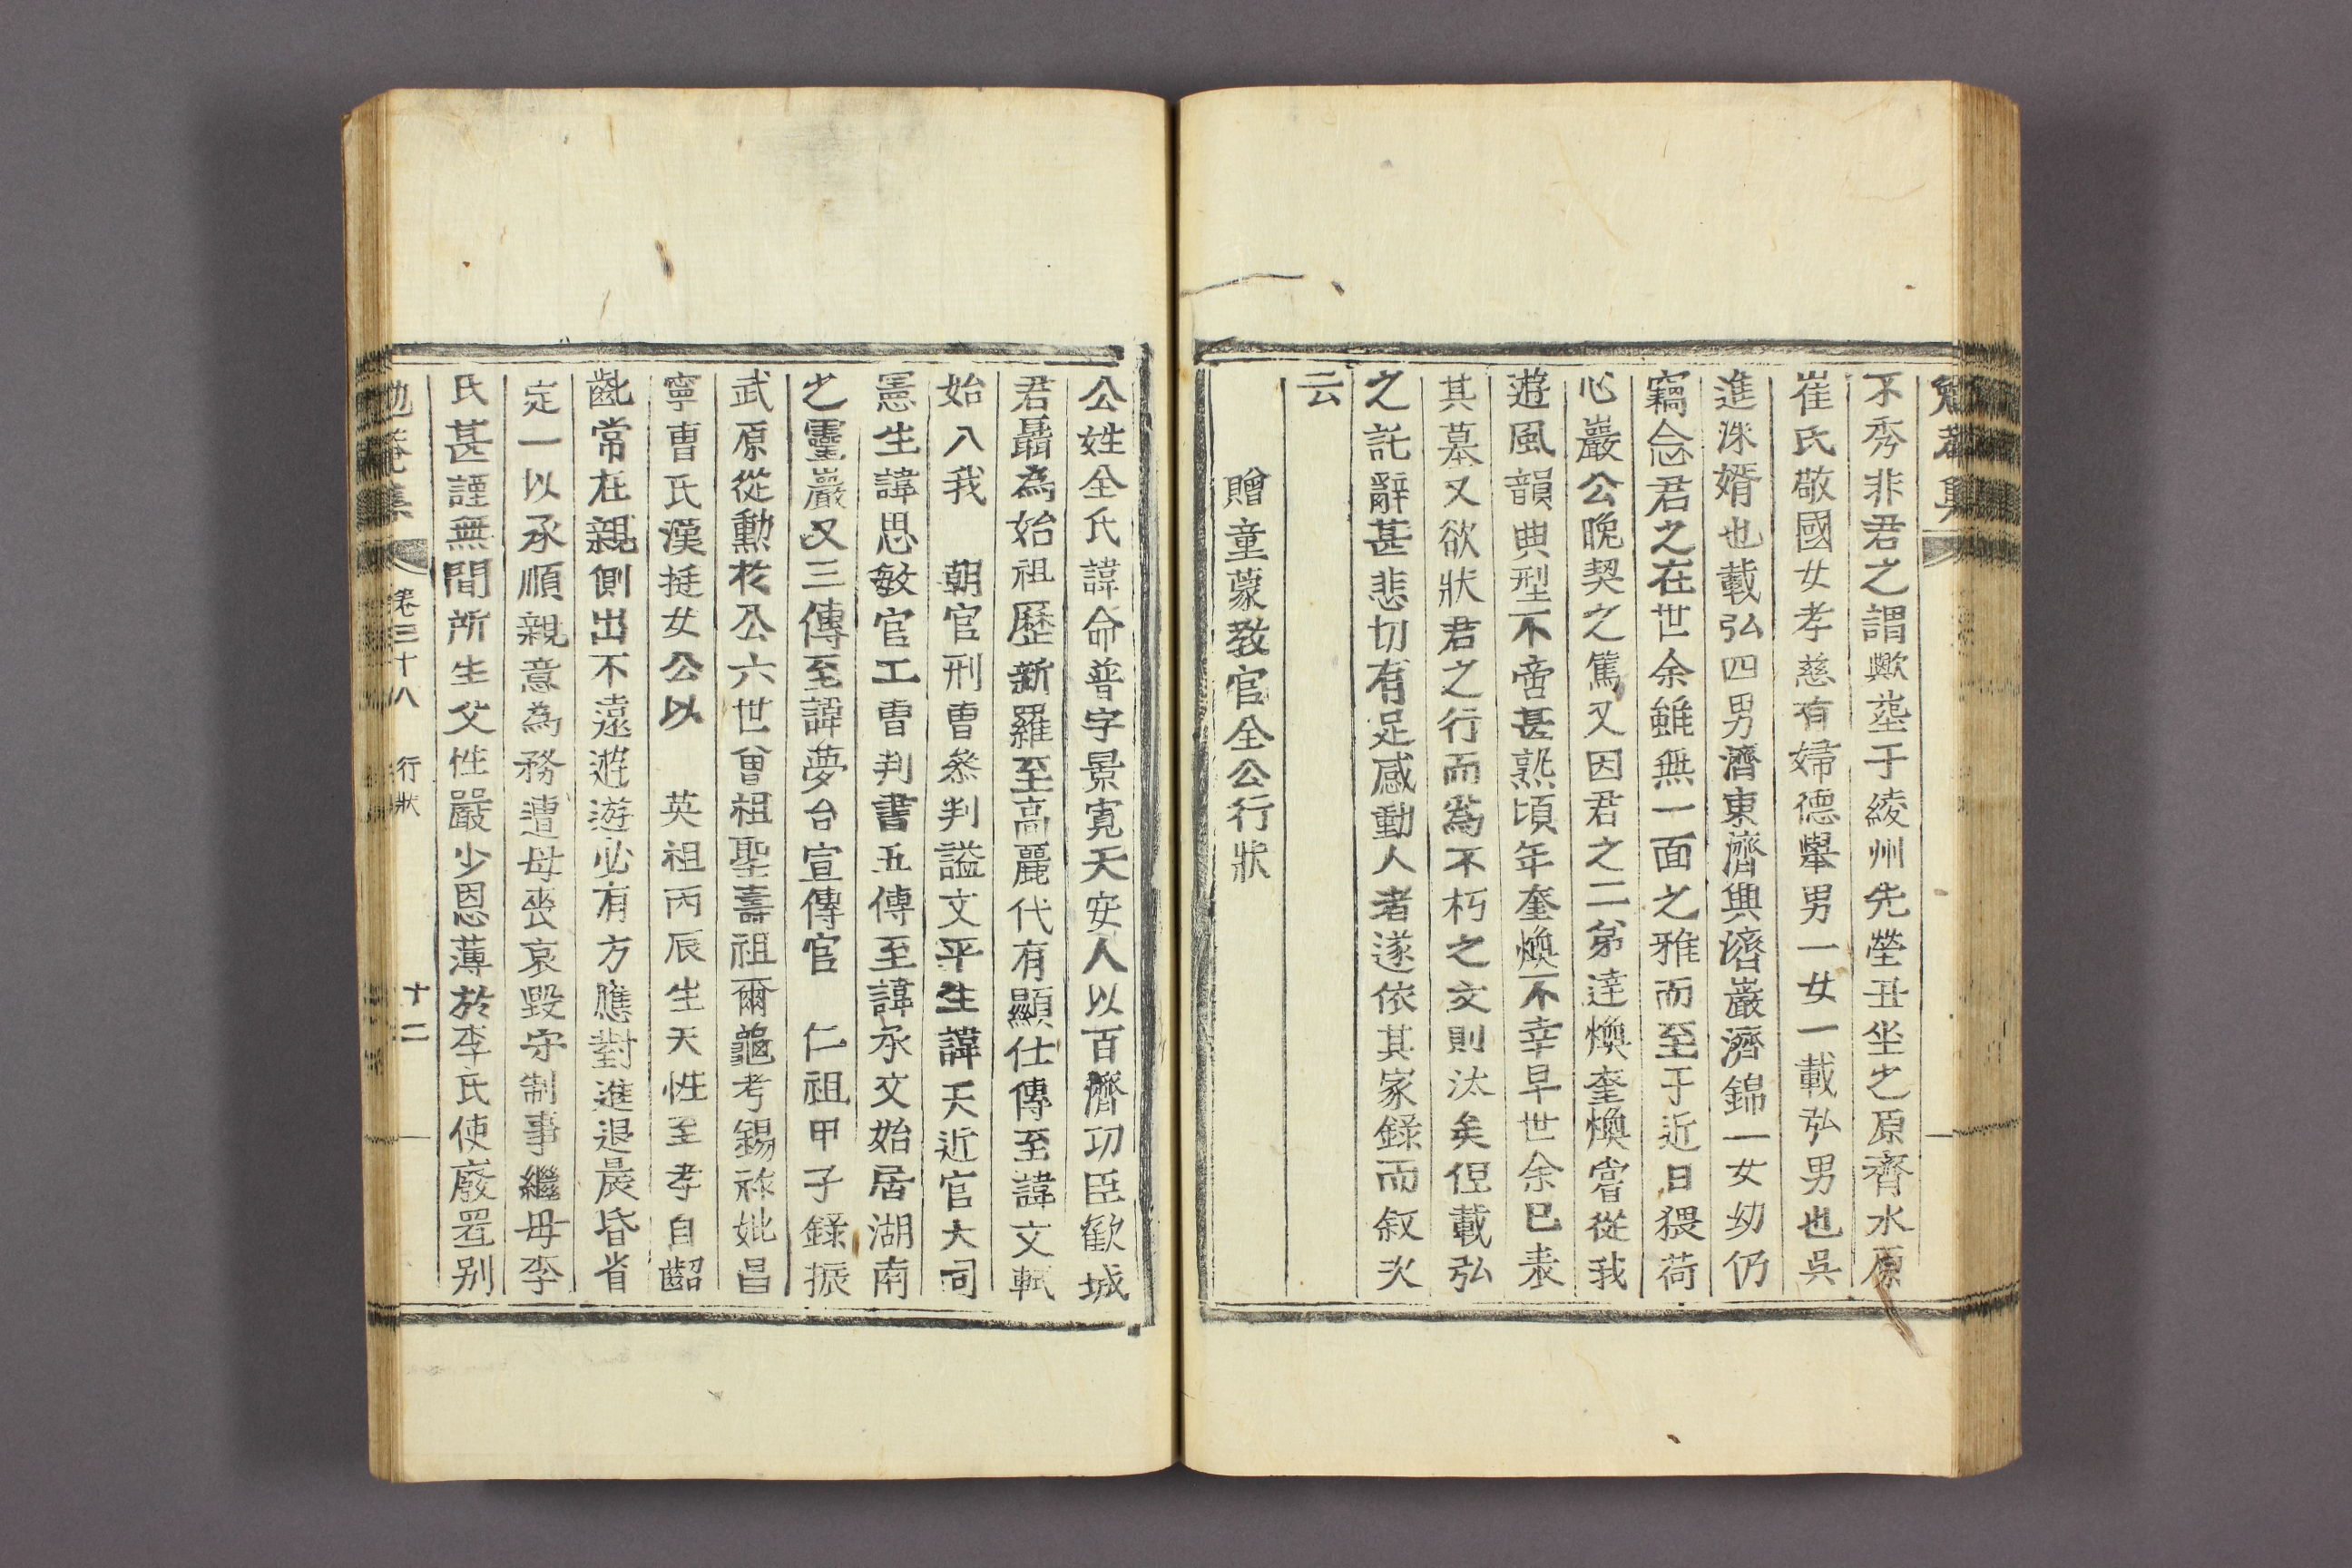 不秀非君之謂歟葬于綾州先塋丑坐之原齊水原
崔氏敬國女孝慈有婦德擧男一女一載弘男也吳
進洙婿也載弘四男濟東濟興濟巖濟錦一女幼仍
竊念君之在世余雖無一面之雅而至于近日猥荷
心巖公晩契之篤又因君之二弟達煥奎煥嘗從我
遊風韻典型不啻甚熟頃年奎煥不幸早世余已表
其墓又欲狀君之行而爲不朽之文則汰矣但載弘
之託辭甚悲切有足感動人者遂依其家錄而叙次
云
贈童蒙敎官全公行狀
公姓全氏諱命普字景寬天安人以百濟功臣歡城
君聶為始祖歷新羅至高麗代有顯仕傳至諱文軾
始入我 朝官刑曹叅判謚文平生諱天近官大司
憲生諱思敏官工曹判書五傳至諱承文始居湖南
之靈巖又三傳至諱夢台宣傳官 仁祖甲子錄振
武原從勳於公六世曾祖聖壽祖爾龜考錫祿妣昌
寧曹氏漢挺女公以 英祖丙辰生天性至孝自齠
齔常在親側出不遠遊遊必有方應對進退晨昏省
定一以承順親意為務遭母喪哀毀守制事繼母李
氏甚謹無間所生父性嚴少恩薄於李氏使廢置別
勉菴集 卷三十八 行狀 十二